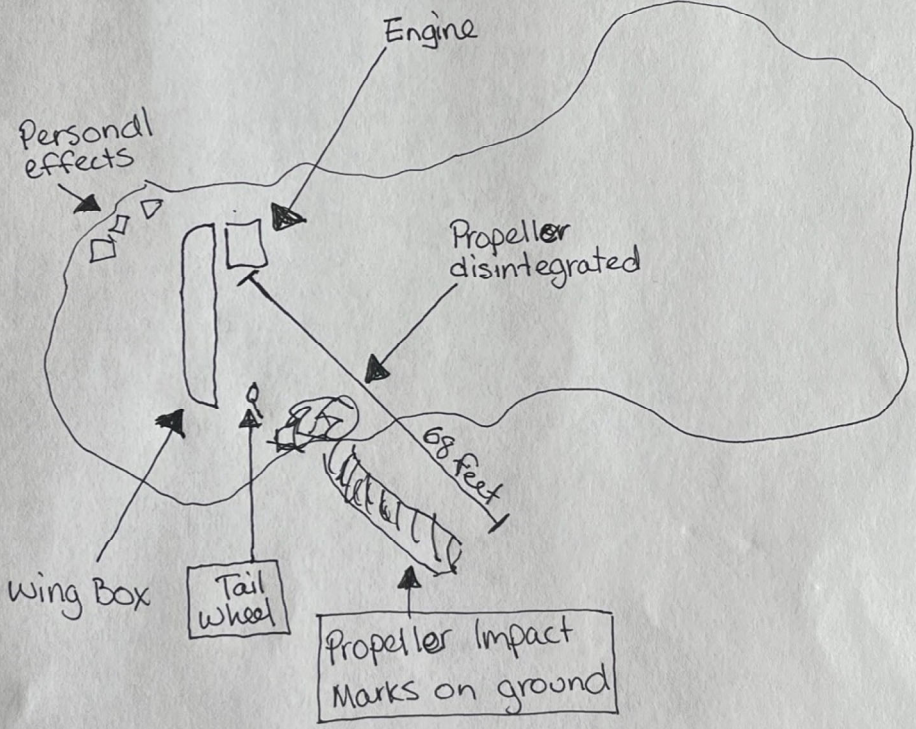 Engine
Personal
effects
Propeller
disintegrated
68 feet
Wing Box
Tail
Wheel
Propeller Impact
Marks on ground